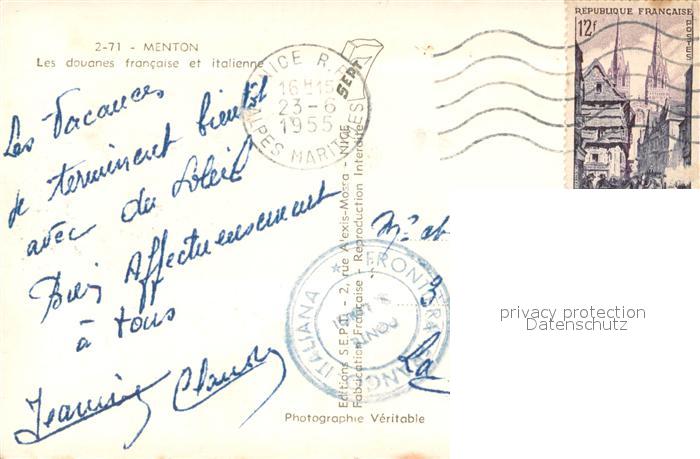 2-71 - MENTON
Les douanes française et italienne
Les Vacances
se terminent bientôt
avec du Soleil
Bien Affectueusement
à tous
Jeanine Claude
NICE R.P.
16H15
23-6
1955
ALPES MARITIMES
SEPT
RÉPUBLIQUE FRANÇAISE
12f
POSTES
Editions S.E.P.T. - 2, rue Alexis-Mossa - NICE
Fabrication Française - Reproduction Interdite
FRONTIERA FRANCO ITALIANA
PONT
Mr et
La
privacy protection
Datenschutz
Photographie Véritable